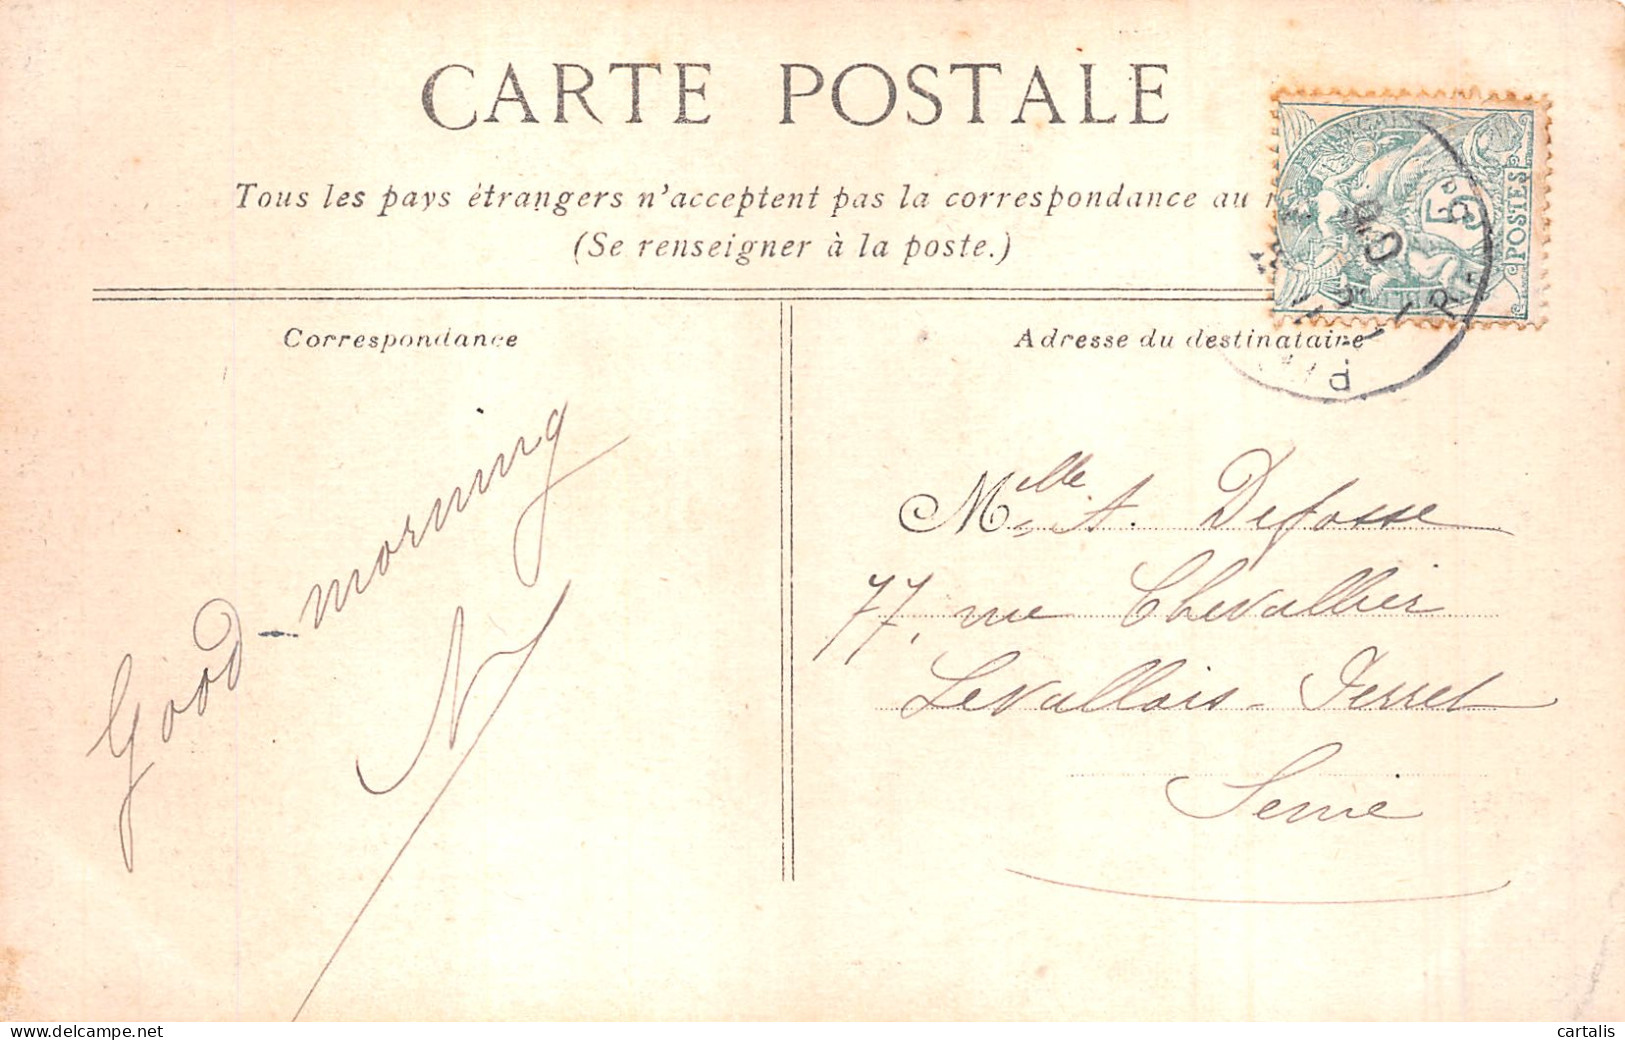 CARTE POSTALE
Tous les pays étrangers n'acceptent pas la correspondance au
(Se renseigner à la poste.)
Correspondance
Adresse du destinataire
Good-morning
N
Melle A. Defosse
77, rue Chevallier
Levallois-Perret
Seine
5c
POSTES
delcampe.net
cartalis